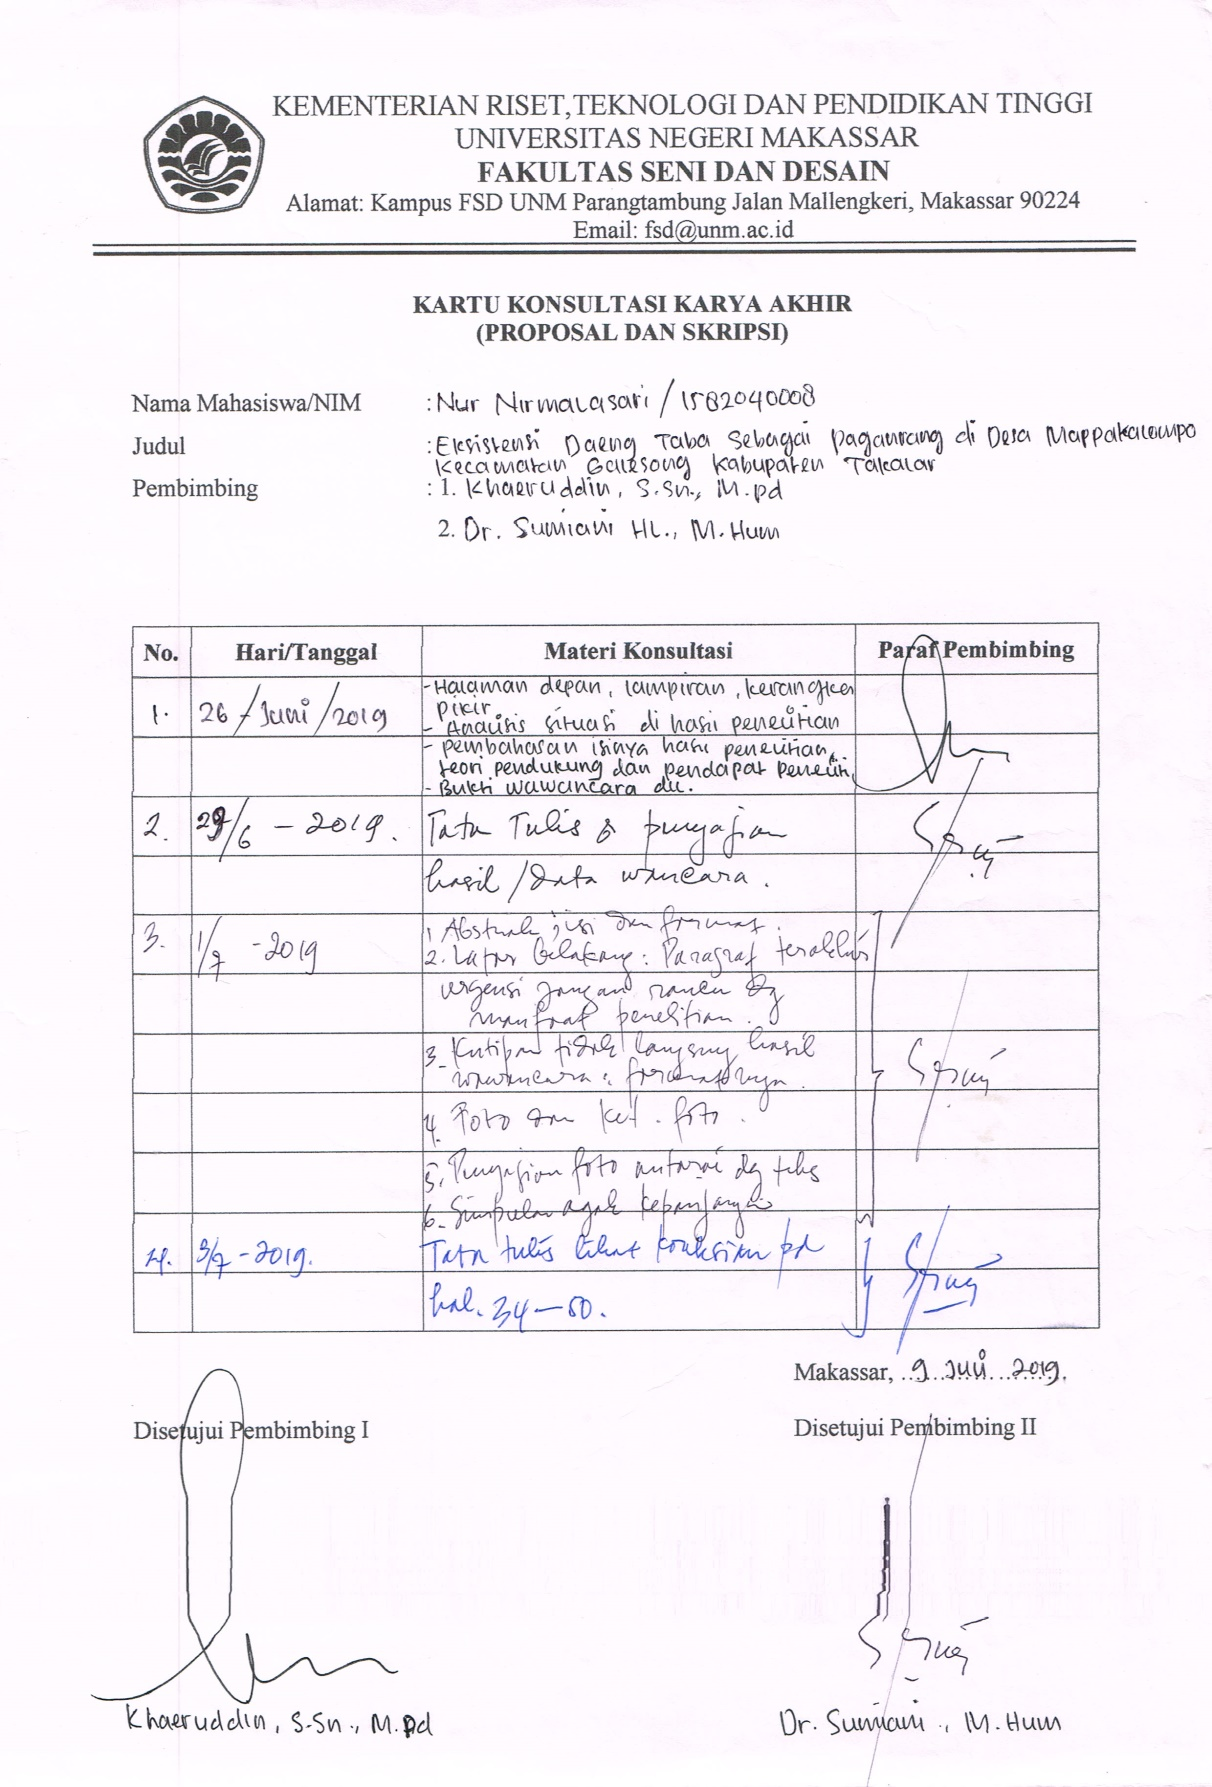 KEMENTERIAN RISET,TEKNOLOGI DAN PENDIDIKAN TINGGI
UNIVERSITAS NEGERI MAKASSAR
FAKULTAS SENI DAN DESAIN
Alamat: Kampus FSD UNM Parangtambung Jalan Mallengkeri, Makassar 90224
Email: fsd@unm.ac.id
KARTU KONSULTASI KARYA AKHIR
(PROPOSAL DAN SKRIPSI)
Nama Mahasiswa/NIM : Nur Nirmalasari / 1582040008
Judul : Eksistensi Daeng Taba Sebagai paganrang di Desa Mappakalompo
Kecamatan Galesong Kabupaten Takalar
Pembimbing : 1. Khaeruddin, S.Sn., M.pd
2. Dr. Sumiani HL., M.Hum
No. Hari/Tanggal Materi Konsultasi Paraf Pembimbing
1. 26 - Juni / 2019 - Halaman depan, lampiran, kerangka
pikir
- Analisis situasi di hasil penelitian
- pembahasan isinya hasil penelitian,
teori pendukung dan pendapat peneliti.
- Bukti wawancara dll.
2. /6 - 2019. Tata Tulis & penyajian
hasil / data wancara.
3. 1/7 - 2019 1. Abstrak ; isi dan format.
2. Latar Belakang : Paragraf terakhir
urgensi jangan rancu dg
manfaat penelitian.
3. Kutipan tidak langsung hasil
wawancara : formatnya.
4. Foto dan ket. foto.
5. Penyajian foto antarai dg teks
6. Simpulan agak kepanjangan
4. 3/7 - 2019. Tata tulis lihat koreksian pd
hal. 34 - 50.
Makassar, 9 Juli 2019.
Disetujui Pembimbing I Disetujui Pembimbing II
Khaeruddin, S.Sn., M.pd Dr. Sumiani ., M.Hum